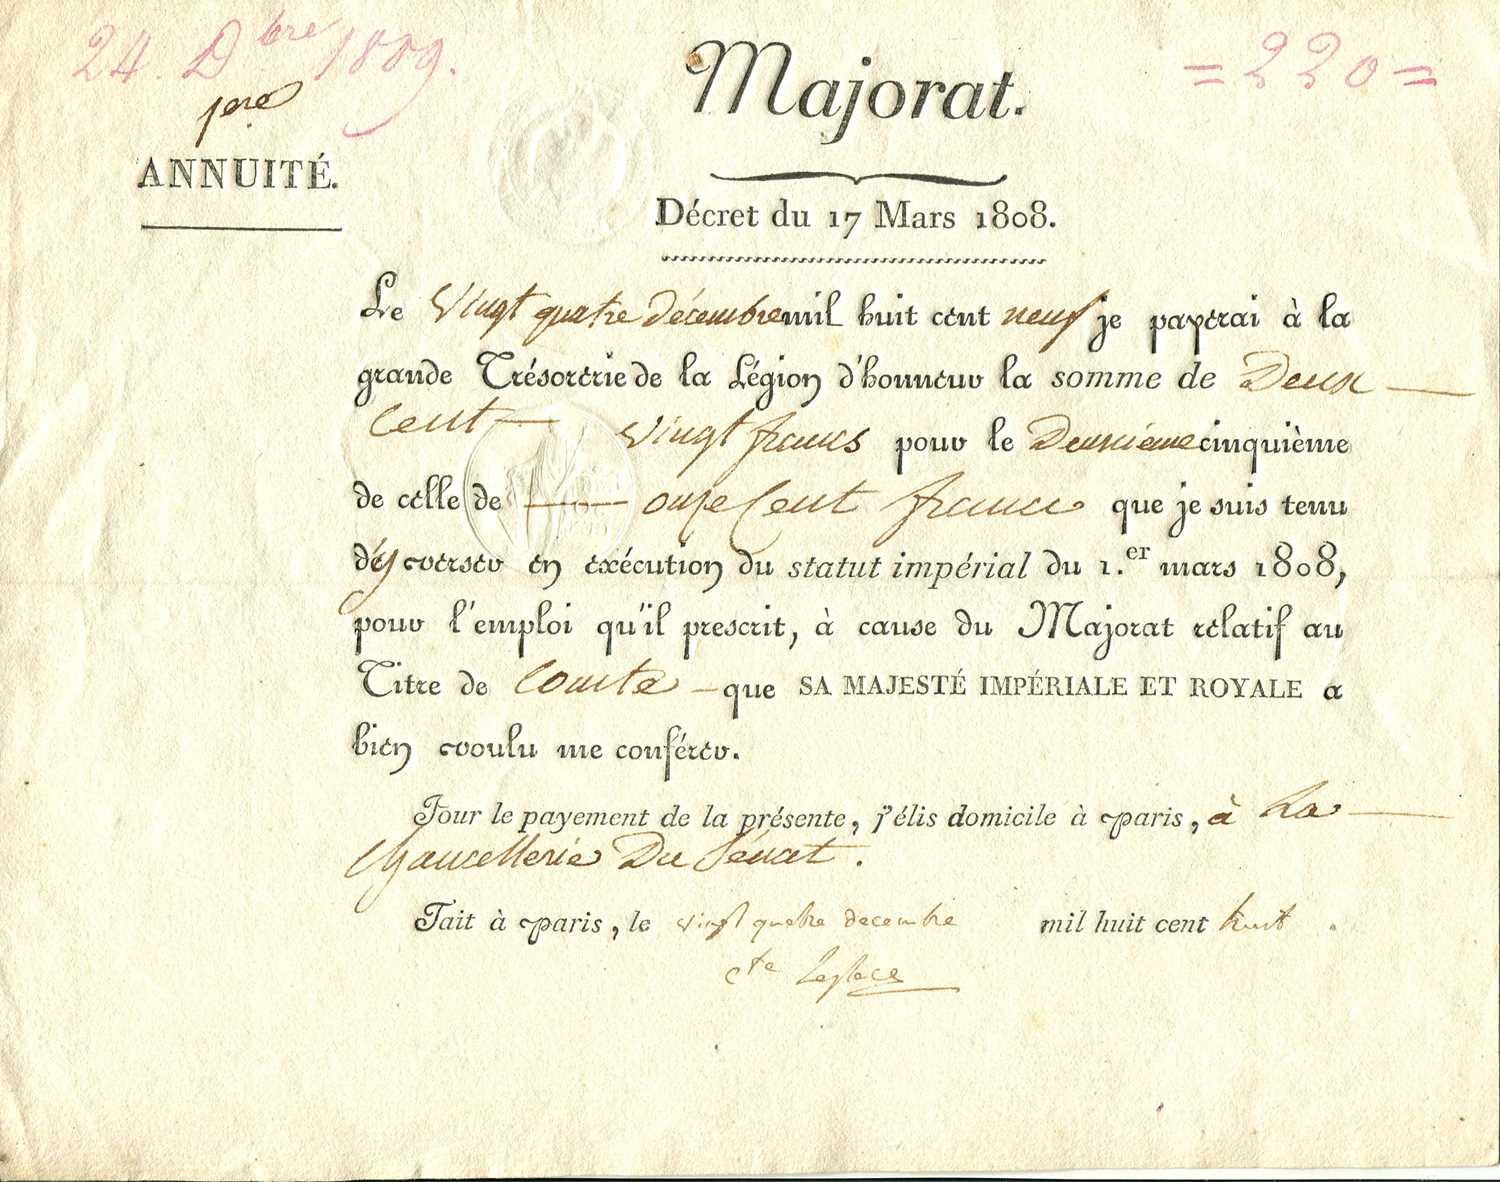 24. Dbre 1809.
= 220 =
Majorat.
1ere
ANNUITÉ.
Décret du 17 Mars 1808.
Le Vingt quatre décembre mil huit cent neuf je payerai à la
grande Trésorerie de la Légion d'honneur la somme de Deux —
Cent — vingt francs pour le Deuxième cinquième
de celle de — onze Cent francs que je suis tenu
d'y verser en exécution du statut impérial du 1.er mars 1808,
pour l'emploi qu'il prescrit, à cause du Majorat relatif au
Titre de Comte — que SA MAJESTÉ IMPÉRIALE ET ROYALE a
bien voulu me conférer.
Pour le payement de la présente, j'élis domicile à Paris, à La —
Chancellerie Du Sénat.
Fait à Paris, le vingt quatre decembre mil huit cent huit.
Cte Laplace